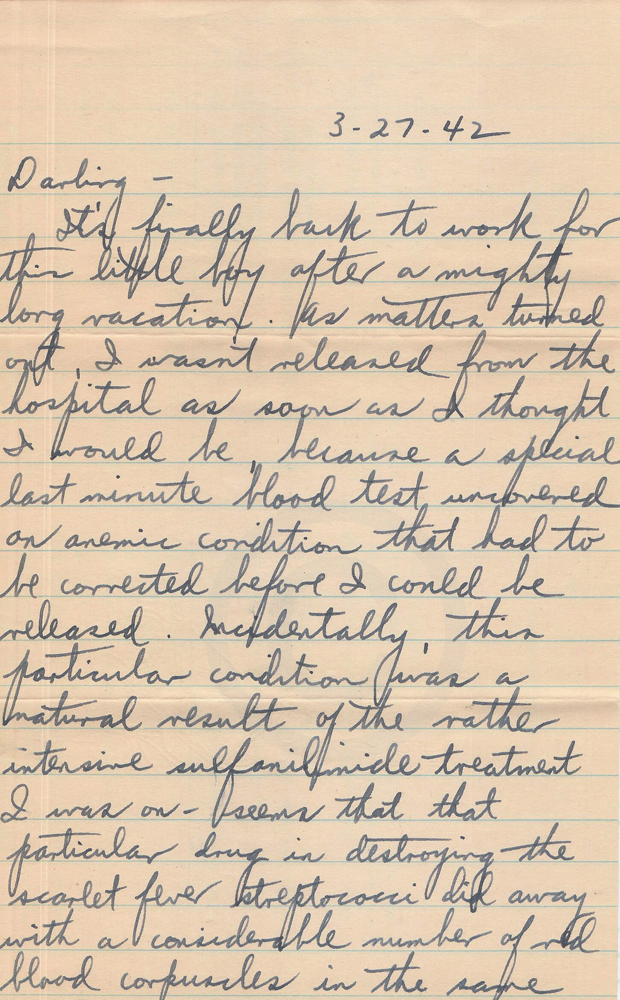 3-27-42
Darling -
It's finally back to work for
this little boy after a mighty
long vacation. As matters turned
out, I wasn't released from the
hospital as soon as I thought
I would be, because a special
last minute blood test uncovered
an anemic condition that had to
be corrected before I could be
released. Incidentally, this
particular condition was a
natural result of the rather
intensive sulfanilimide treatment
I was on - seems that that
particular drug in destroying the
scarlet fever streptococci did away
with a considerable number of red
blood corpuscles in the same